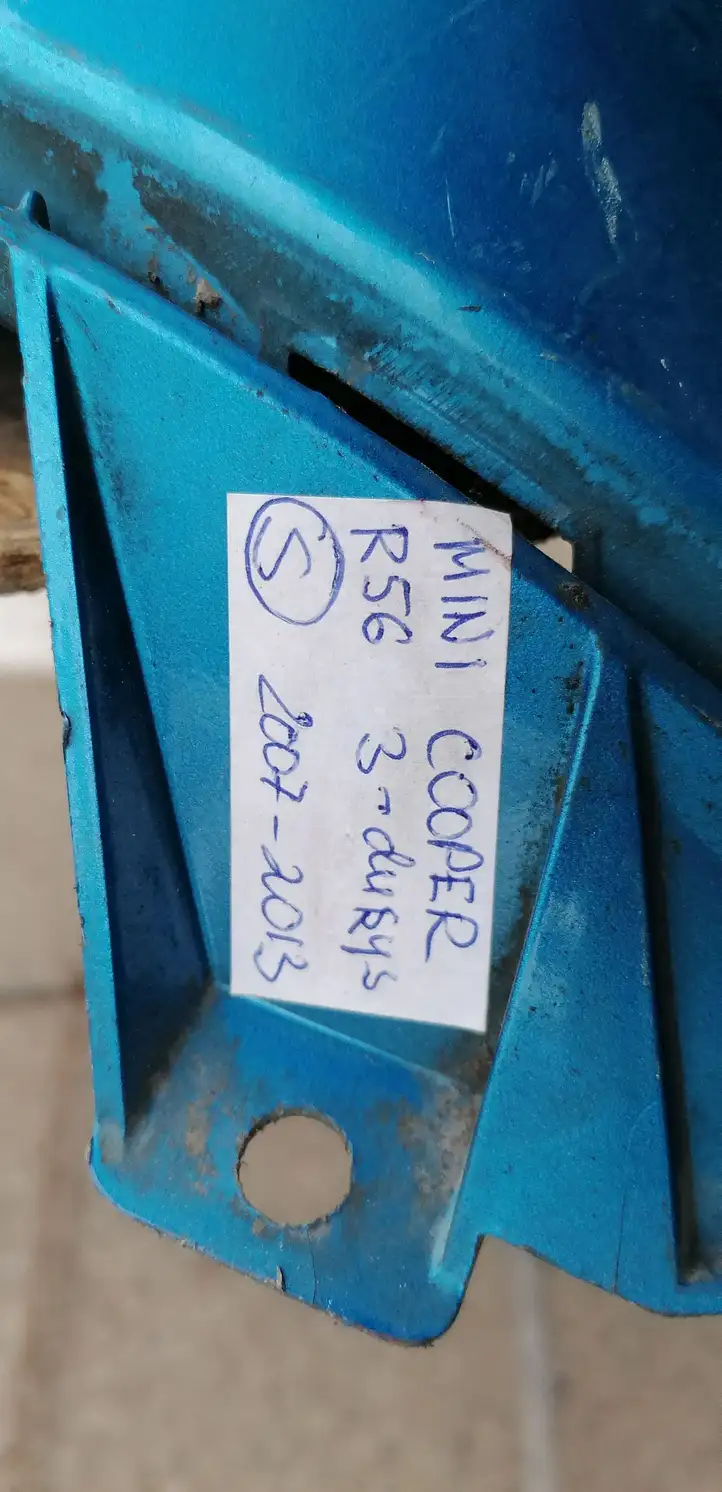 MINI COOPER
R56 3-durys
S 2007-2013